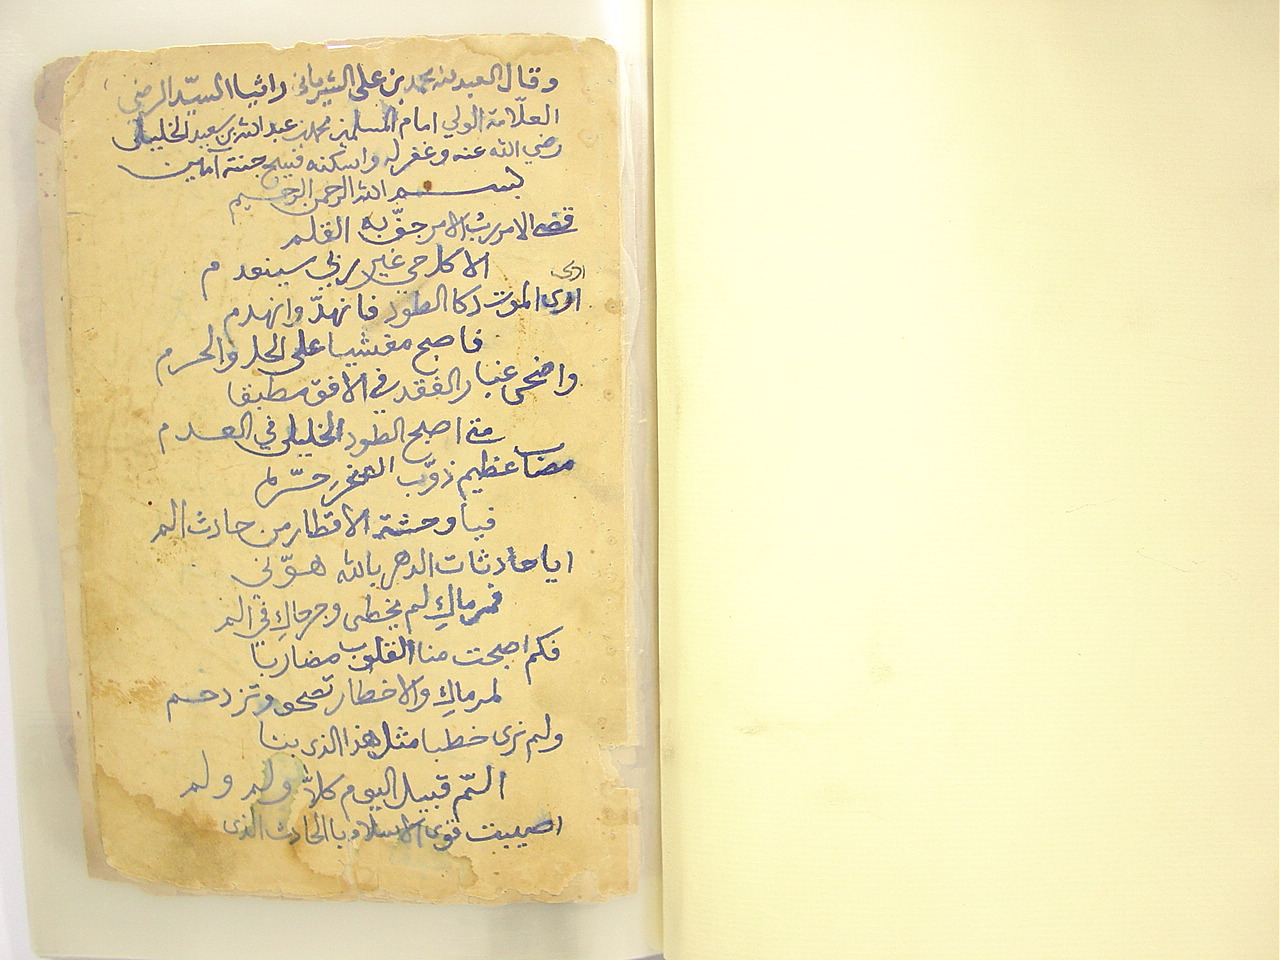 وقال العبد لله محمد بن علي الشرياني راثيا السيّد الرضي
العلّامة الولي امام المسلمين محمد بن عبدالله بن سعيد الخليلي
رضي الله عنه وغفر له واسكنه فسيح جنته آمين
بسم الله الرحمن الرحيم
قضى الامر ربُّ الامر جفّ به القلم
الا كل حي غير ربي سينعدم
ارى
ارى الموت دكا الطود فانهدّ وانهدم
فاصبح مغشيا على الحل والحرم
واضحى غبار الفقد في الافق مطبقا
متى اصبح الطود الخليلي في العدم
مصاب عظيم ذوّب الصخرِ حسّرلم
فيا وحشة الاقطار من حادث الم
ايا حادثات الدهر بالله هوّني
فمرماكِ لم يخطى وجرحاكِ في الم
فكم اصبحت منا القلوب مضاربا
لمرماكِ والاخطار تصحو وتزدحم
ولم نرى خطبا مثل هذا الذي بنا
التّم قبيل اليوم كلاّ ولم ولم
اصيبت قوى الاسلام بالحادث الذي